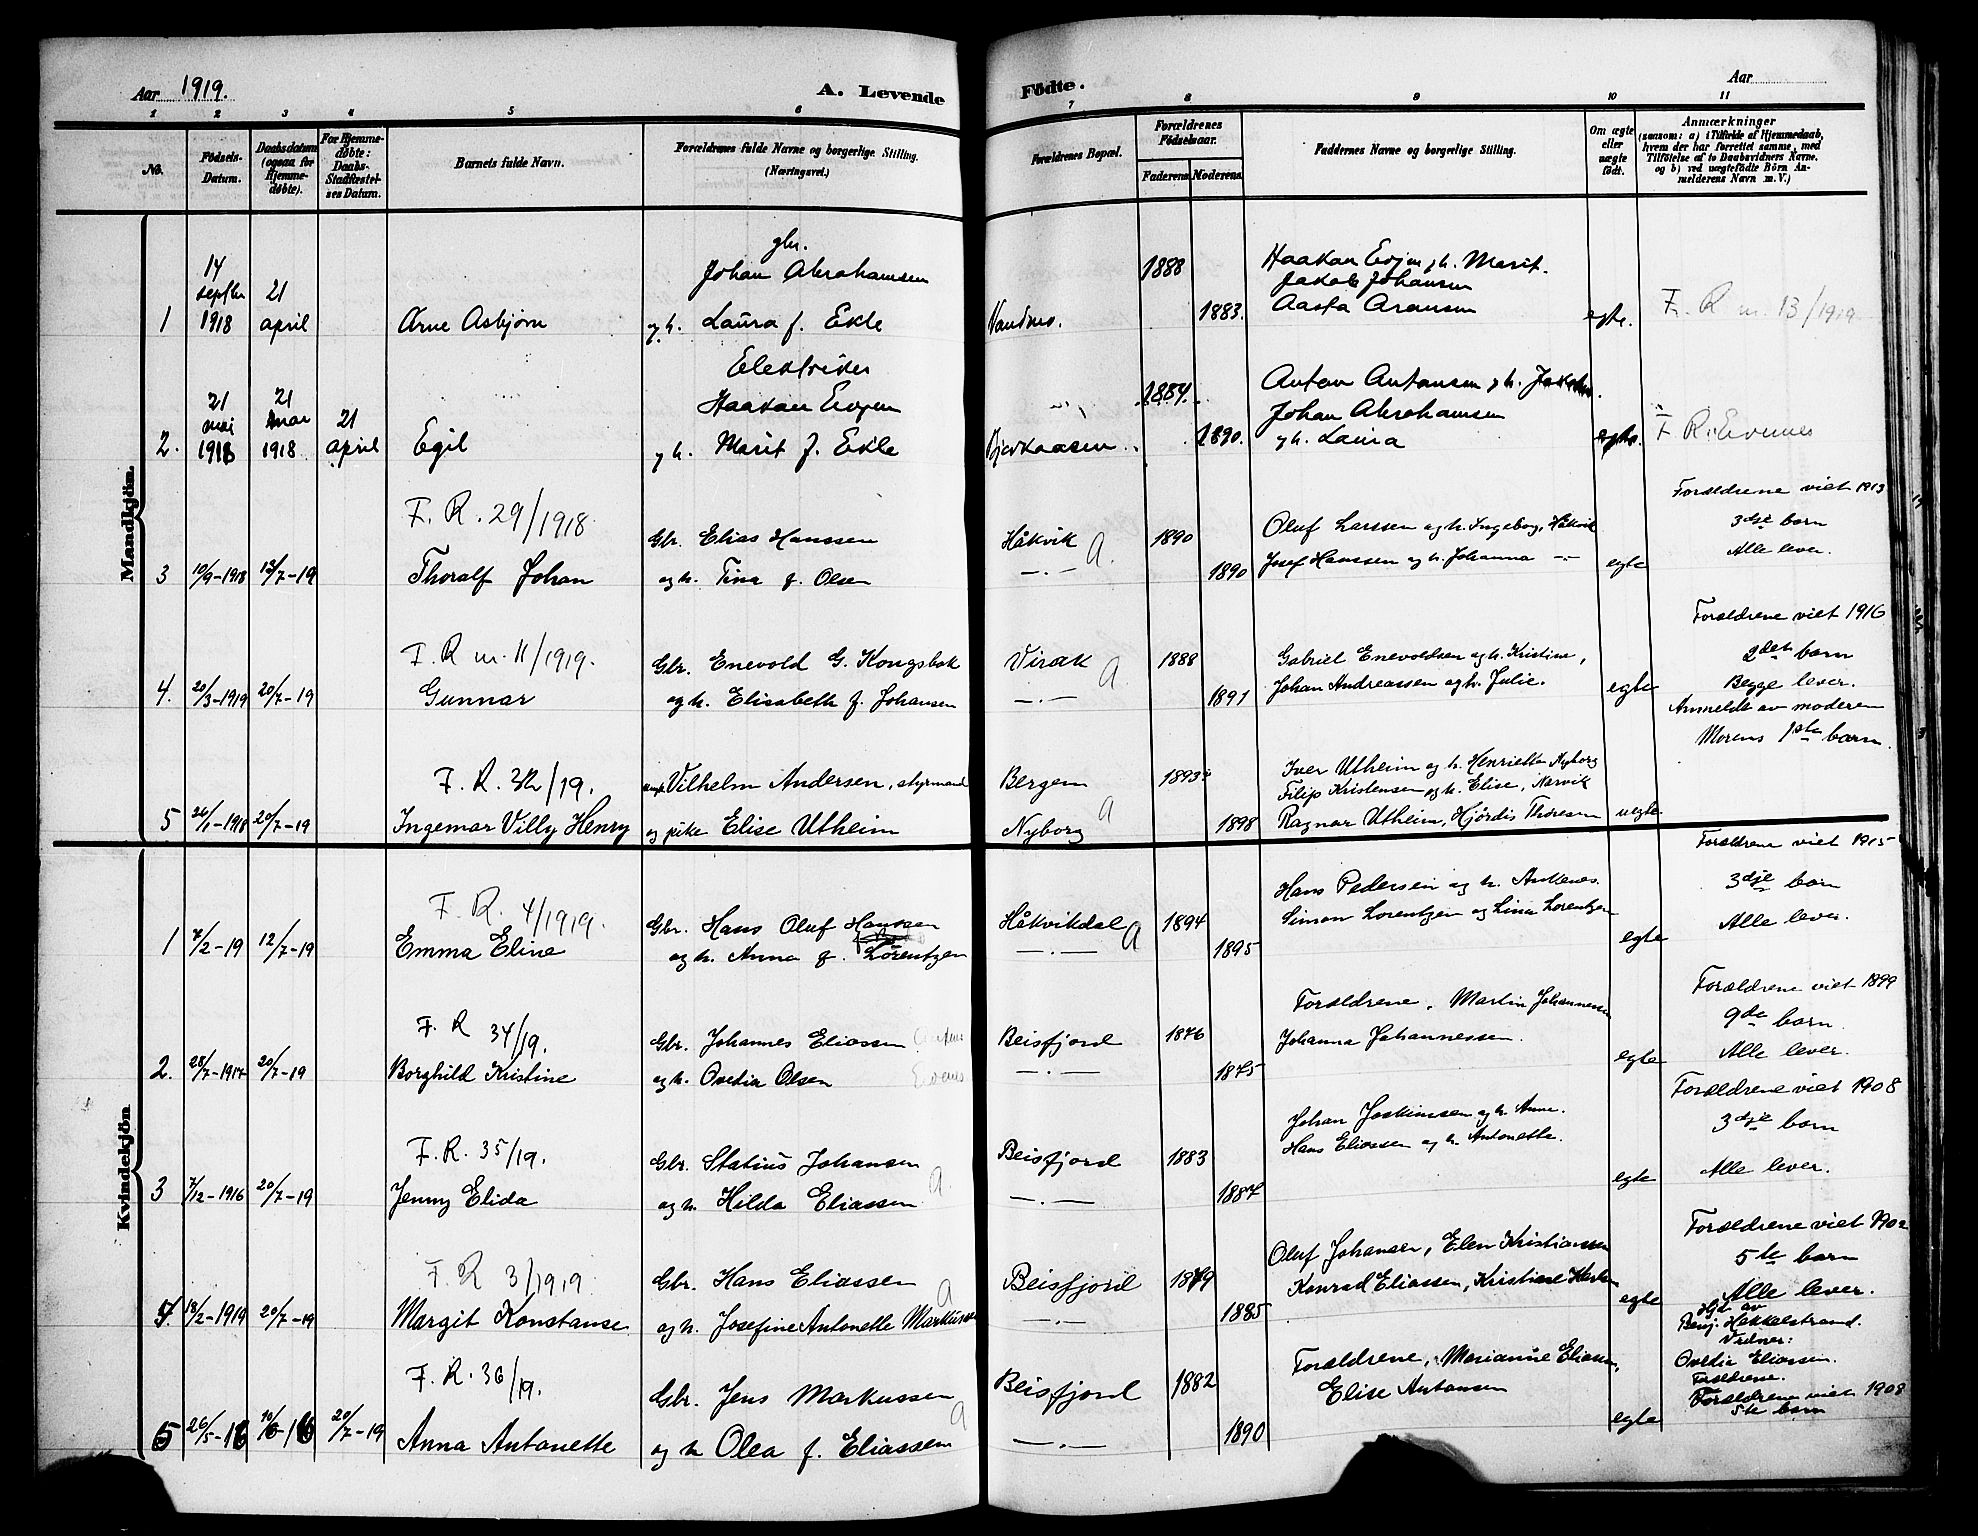 Aar 1919.
A. Levende Födte.
Aar
1 2 3 4 5 6 7 8 9 10 11
No.
Fødsels-Datum.
Daabsdatum (ogsaa for Hjemmedøbte).
For Hjemmedøbte: Daabs-Stadfæstelses Datum.
Barnets fulde Navn.
Forældrenes fulde Navne og borgerlige Stilling. (Næringsvei.)
Forældrenes Bopæl.
Forældrenes Fødselsaar.
Faderens Moderens
Faddernes Navne og borgerlige Stilling.
Om ægte eller uægte født.
Anmærkninger
(saasom: a) i Tilfælde af Hjemmedaab,
hvem der har forrettet samme, med
Tilføielse af to Daabsvidners Navne.
og b) ved uægtefødte Börn An-
melderens Navn m. V.)
Mandkjön.
gbr.
14 Johan Abrahamsen 1888 Haakan Evjen g h. Marit.
septbr 21 Jakob Johansen
1 1918 april Arne Asbjørn g h. Laura f. Ekle 1883. Aasta Aronsen egte. F. R m. 13/1919
Elektriker
21 21 Haakan Evjen 1884. Anton Antonsen g h.
mai 21 Johan Abrahamsen
2. 1918 1918 april Egil g h. Marit f. Ekle Bjerkaasen 1890. g h. Laura egte. F. R. Evenes
F. R. 29/1918 Gbr. Elias Hanssen Håkvik A 1890 Oluf Larssen og h. Ingeborg, Håkvik Forældrene viet 1913
3dje barn
Alle lever.
3 10/9-1918 13/7-19 Thoralf Johan og h. Tina f. Olsen -.- 1890 Josef Hanssen og h. Johanna -"- egte
F. R m. 11/1919. Gbr. Enevold G. Kongsbak Virak A 1888 Gabriel Enevoldsen og h. Kristine, Forældrene viet 1916
2det barn
Begge lever.
4. 20/3-1919 20/7-19 Gunnar og h. Elisabeth f. Johansen -.- 1891 Johan Andreassen og h. Julie. egte
Anmeldt av moderen
Morens 1ste barn.
F. R. 32/19. Vilhelm Andersen, styrmand Bergen A 1893 Iver Utheim og h. Henriette Nyborg
Filip Kristensen og h. Elise, Narvik
5 20/7-19 Ingemar Villy Henry og pike Elise Utheim Nyborg 1898 Ragnar Utheim, Hjørdis Thoresen uegte
Kvindekjön
Forældrene viet 1915
3dje barn
Alle lever.
F. R. 4/1919. Gbr. Hans Oluf Hanssen Håkvikdal A 1894 Hans Pedersen og h. Ankenes.
Simon Lorentzen og Lina Lorentzen
1 7/2-19 12/7-19 Emma Eline og h. Anna f. Lorentzen -.- 1895 egte
Forældrene viet 1899
9de barn.
Alle lever.
F. R 34/19. Gbr. Johannes Eliassen Beisfjord 1876 Forældrene, Martin Johannessen
Johanna Johannessen.
2. 28/7-1917 20/7-19 Borghild Kristine og h. Ovedia Olsen Evenes -.- 1875 egte
Forældrene viet 1908
3dje barn
Alle lever.
F. R. 35/19. Gbr. Statius Johansen A Beisfjord 1883 Johan Joakimsen og h. Anne.
Hans Eliassen og h. Antonette.
3 7/12-1916 20/7-19 Jenny Elida og h. Hilda Eliassen -.- 1887 egte
Forældrene viet 1902
5te barn
Alle lever.
F. R 3/1919. Gbr. Hans Eliassen A Beisfjord 1879 Oluf Johansen, Elen Kristiansen
Konrad Eliassen, Kristiane
4. 18/2-1919 20/7-19 Margit Konstanse og h. Josefine Antonette Markussen -.- 1885 egte
Hjd. av
Benj. Hakkelstrand.
Vidner:
Ovedia Eliassen.
Forældrene.
Forældrene viet 1908
5te barn
F. R. 36/19. Gbr. Jens Markussen A Beisfjord 1882 Forældrene, Marianne Eliassen,
Elise Antonsen
5 26/5-16 10/6-16 20/7-19 Anna Antonette og h Olea f. Eliassen -.- 1890 egte